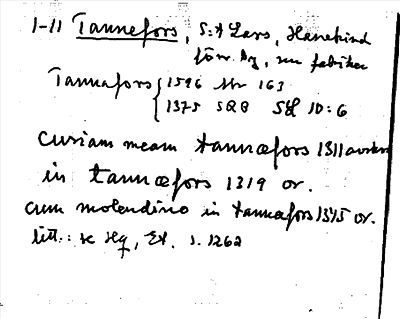 1-11 Tannefors, S:t Lars, Hanekind
förr by, nu fabriker
Tannafors { 1596 Nr 163
1375 SRB SÖ ID:6
curiam meam tannæfors 1311 avskr
in tannæfors 1319 or.
cum molendino in tannafors 1345 or.
litt.: K Hg, Ex. s. 1262